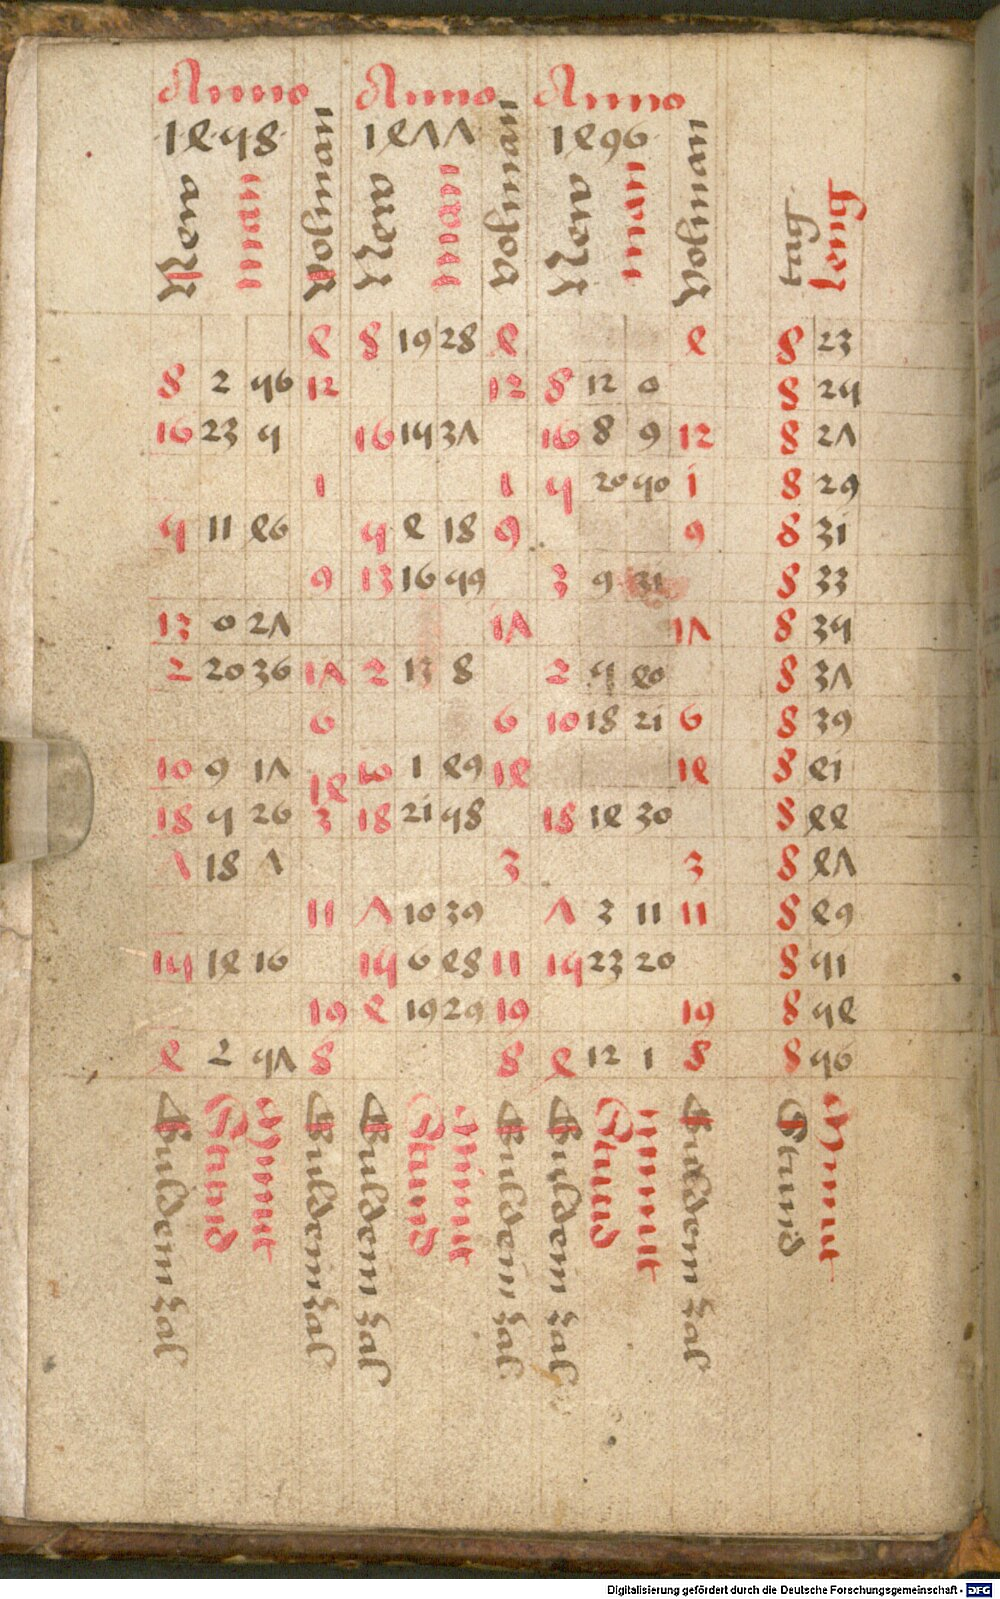 Anno Anno Anno
1458 1477 1496
New man Volman New man Volman New man Volman tag leng
4 8 19 28 4 4 8 23
8 2 56 12 12 8 12 0 8 25
16 23 5 16 15 37 16 8 9 12 8 27
1 1 5 20 50 1 8 29
5 11 46 5 4 18 9 9 8 31
9 13 16 59 3 9 31 8 33
13 0 27 17 17 8 35
2 20 36 17 2 13 8 2 5 40 8 37
6 6 10 18 21 6 8 39
10 9 17 14 10 1 49 14 14 8 41
18 5 26 3 18 21 58 18 14 30 8 44
7 18 7 3 3 8 47
11 7 10 39 7 3 11 11 8 49
15 14 16 15 6 48 11 15 23 20 8 51
19 4 19 29 19 19 8 54
4 2 57 8 8 4 12 1 8 8 56
Guldein zal Stund Minut Guldein zal Guldein zal Stund Minut Guldein zal Guldein zal Stund Minut Guldein zal Stund Minut
Digitalisierung gefördert durch die Deutsche Forschungsgemeinschaft - DFG